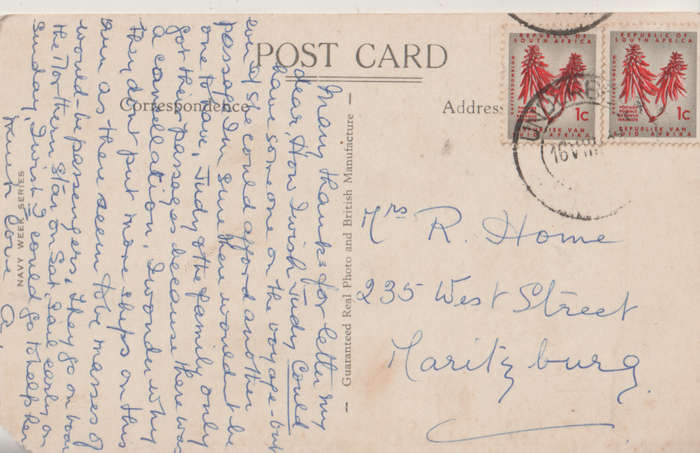 POST CARD
Correspondence
Address
NAVY WEEK SERIES
Guaranteed Real Photo and British Manufacture
REPUBLIC OF
SOUTH AFRICA
1c
REPUBLIEK VAN
SUID AFRIKA
REPUBLIC OF
SOUTH AFRICA
1c
REPUBLIEK VAN
SUID AFRIKA
16 VIII
Many thanks for letter my
dear, How I wish Judy Could
have someone on the voyage - but
even if she could afford another
passage I'm sure there wouldn't be
one to have, Judy & the family only
got their passages because there was
a cancellation, I wonder why
they don't put more ships on this
run as there seem to be masses of
would-be passengers, They go on board
the Northern Star on Sat, sail early on
Sunday, I wish I could go to help her
Much Love
Mrs R. Home
235 West Street
Maritzburg.